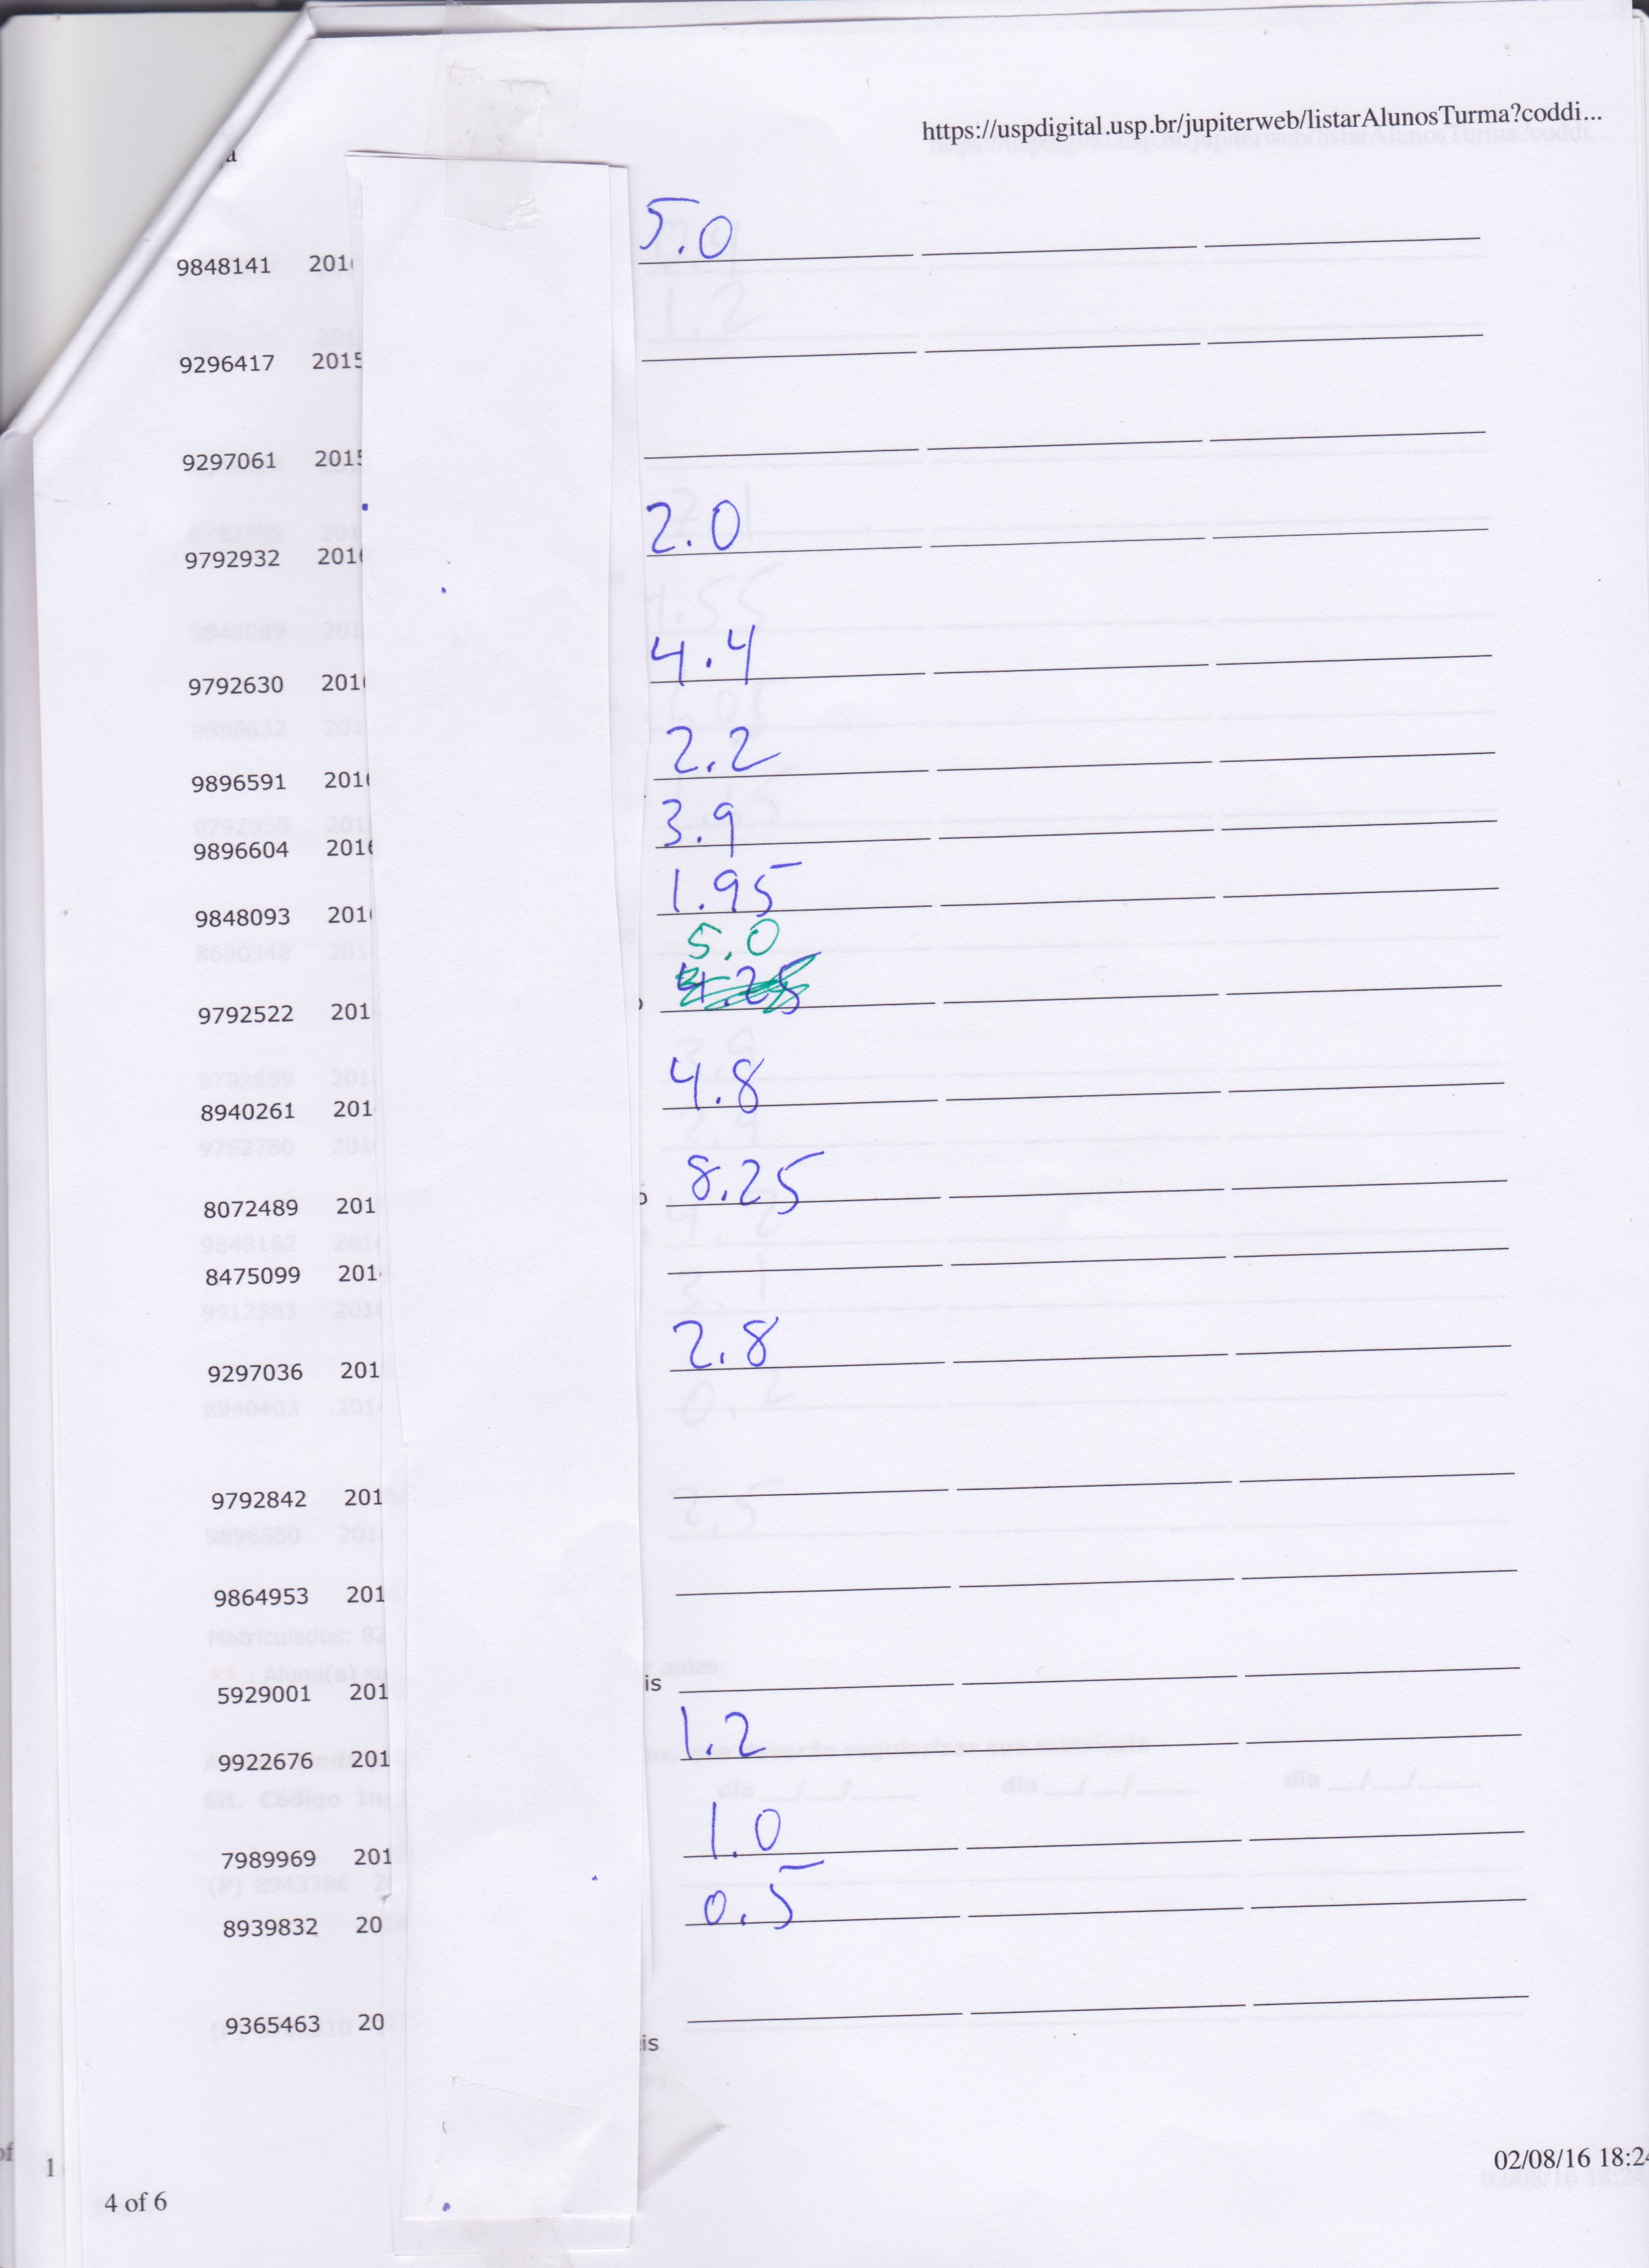 https://uspdigital.usp.br/jupiterweb/listarAlunosTurma?coddi...
a
9848141 201 5.0
9296417 2015
9297061 2015
9792932 201 2.0
9792630 201 4.4
9896591 201 2.2
9896604 2016 3.9
9848093 201 1.95
5.0
9792522 201 4.25
8940261 201 4.8
8072489 201 8.25
8475099 201
9297036 201 2.8
9792842 201
9864953 201
5929001 201 is
9922676 201 1.2
7989969 201 1.0
8939832 20 0.5
9365463 20
is
of 1
02/08/16 18:24
4 of 6